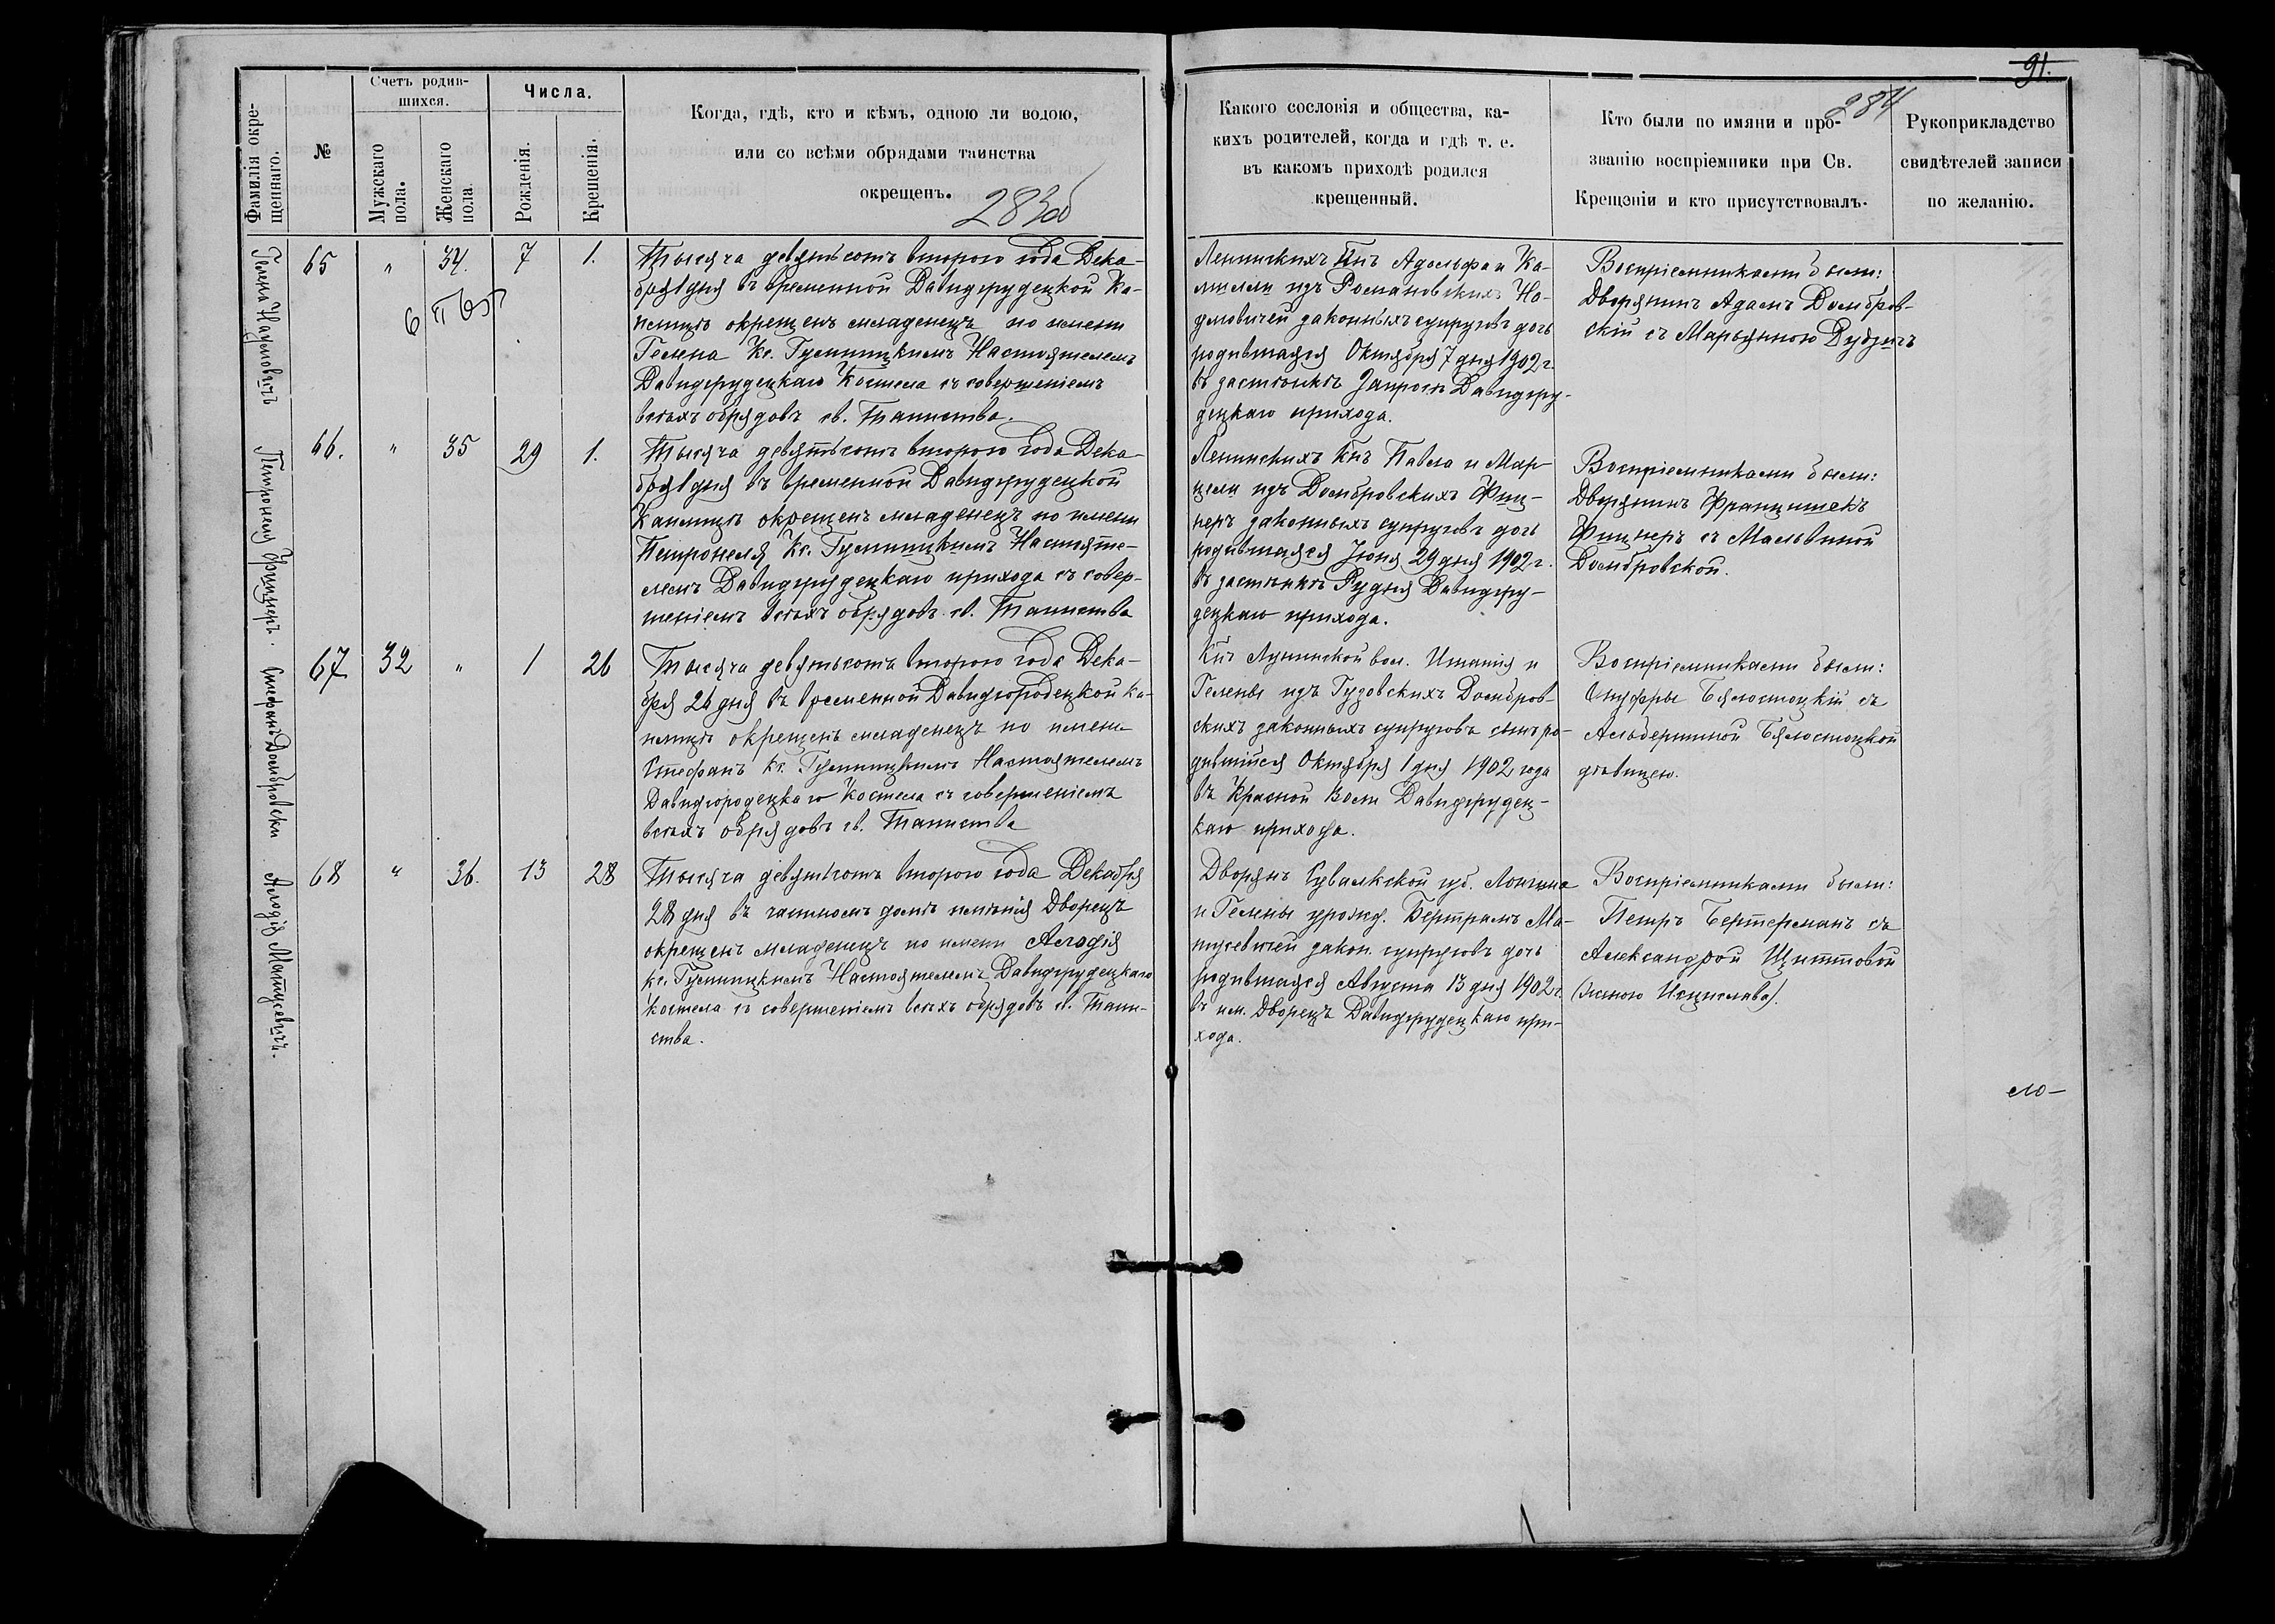 91.
284
Фамилія окре-
щеннаго.
№
Счетъ родив-
шихся.
Мужскаго
пола.
Женскаго
пола
Числа.
Рожденія.
Крещенія.
Когда, гдѣ, кто и кѣмъ, одною ли водою,
или со всѣми обрядами таинства
окрещенъ.
283об
Какого сословія и общества, ка-
кихъ родителей, когда и гдѣ т. е.
въ какомъ приходѣ родился
крещенный.
Кто были по имяни и про-
званію воспріемники при Св.
Крещеніи и кто присутствовалъ.
Рукоприкладство
свидѣтелей записи
по желанію.
Гелена
65 " 34. 7 1.
Тысяча девятьсотъ второго года Дека-
бря 1 дня въ временной Давидгрудецкой Ка-
плицѣ окрещенъ младенецъ по имени
Гелена Кс. Настоятелемъ
Давидгрудецкаго Костела съ совершеніемъ
всѣхъ обрядовъ св. Таинства.
Ленинскихъ Адольфа и Ка-
милли изъ Романовскихъ
законныхъ супруговъ дочь
родившаяся Октября 7 дня 1902 г.
въ застѣнкѣ Давидгру-
децкаго прихода.
Воспріемниками были:
Дворянинъ Адамъ Домбров-
скій съ Марьянною
Петронеля Фицнеръ.
66. " 35 29 1.
Тысяча девятьсотъ второго года Дека-
бря 1 дня въ временной Давидгрудецкой
Каплицѣ окрещенъ младенецъ по имени
Петронеля Кс. Настояте-
лемъ Давидгрудецкаго прихода съ совер-
шеніемъ всѣхъ обрядовъ св. Таинства
Ленинскихъ Кнъ Павла и Мар-
цели изъ Домбровскихъ Фиц-
неръ законныхъ супруговъ дочь
родившаяся Іюня 29 дня 1902 г.
въ застѣнкѣ Рудня Давидгру-
децкаго прихода.
Воспріемниками были:
Дворянинъ Францишекъ
Фицнеръ съ Мальвиной
Домбровской.
Стефанъ Домбровски
67 32 " 1 26
Тысяча девятьсотъ второго года Дека-
бря 26 дня въ временной Давидгородецкой ка-
плицѣ окрещенъ младенецъ по имени
Стефанъ Кс. Настоятелемъ
Давидгородецкаго Костела съ совершеніемъ
всѣхъ обрядовъ св. Таинства
Кнъ Лунинской вол. Игнатія и
Гелены изъ Гузовскихъ Домбров-
скихъ законныхъ супруговъ сынъ ро-
дившійся Октября 1 дня 1902 года
въ Красной Воли Давидгрудец-
каго прихода.
Воспріемниками были:
Онуфры Бялостоцкій съ
Альбертиной Бялостоцкой
дѣвицею.
68 " 36. 13 28
Тысяча девятьсотъ второго года Декабря
28 дня въ домѣ имѣнія Дворецъ
окрещенъ младенецъ по имени
кс. Настоятелемъ Давидгрудецкаго
костела съ совершеніемъ всѣхъ обрядовъ св. Таин-
ства.
Дворянъ Сувалкской губ. Лонгина
и Гелены урожд. Бертрамъ Ма-
тусевичей закон. супруговъ дочь
родившаяся Августа 13 дня 1902 г.
въ им. Дворецъ Давидгрудецкаго при-
хода.
Воспріемниками были:
Петръ съ
Александрой
ло-